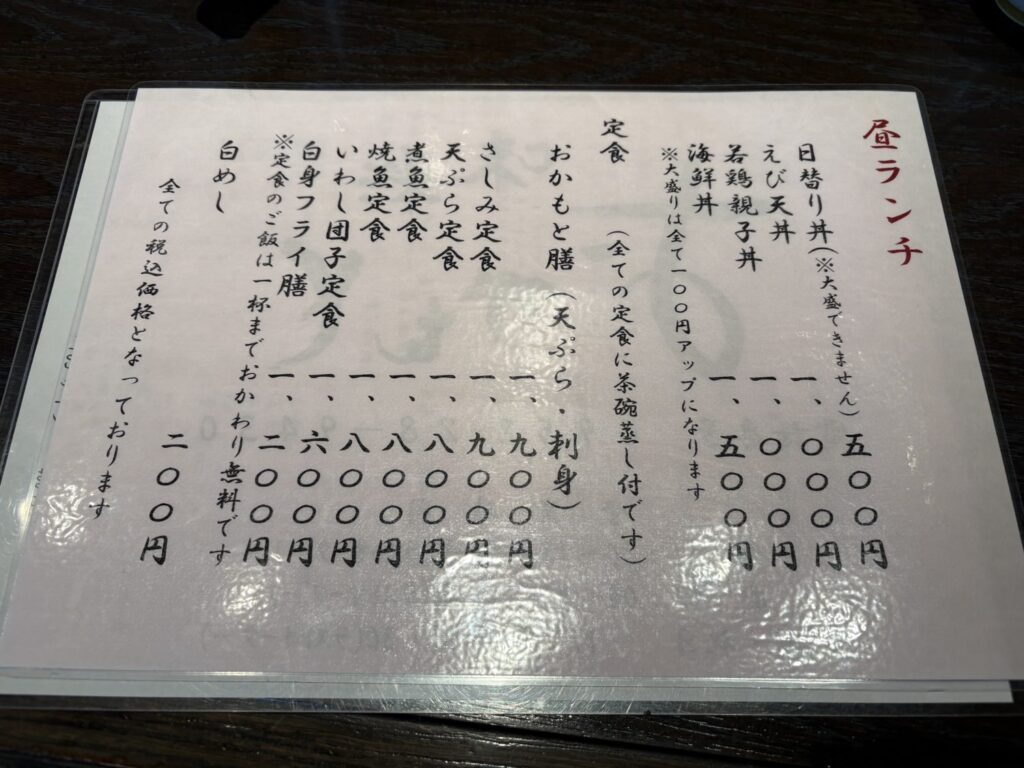 昼ランチ
日替り丼(※大盛できません) 五〇〇円
えび天丼 一、〇〇〇円
若鶏親子丼 一、〇〇〇円
海鮮丼 一、五〇〇円
※大盛りは全て一〇〇円アップになります
定食 (全ての定食に茶碗蒸し付です)
おかもと膳(天ぷら、刺身) 一、九〇〇円
さしみ定食 一、九〇〇円
天ぷら定食 一、八〇〇円
煮魚定食 一、八〇〇円
焼魚定食 一、八〇〇円
いわし団子定食 一、六〇〇円
白身フライ膳 一、二〇〇円
※定食のご飯は一杯までおかわり無料です
白めし 二〇〇円
全ての税込価格となっております